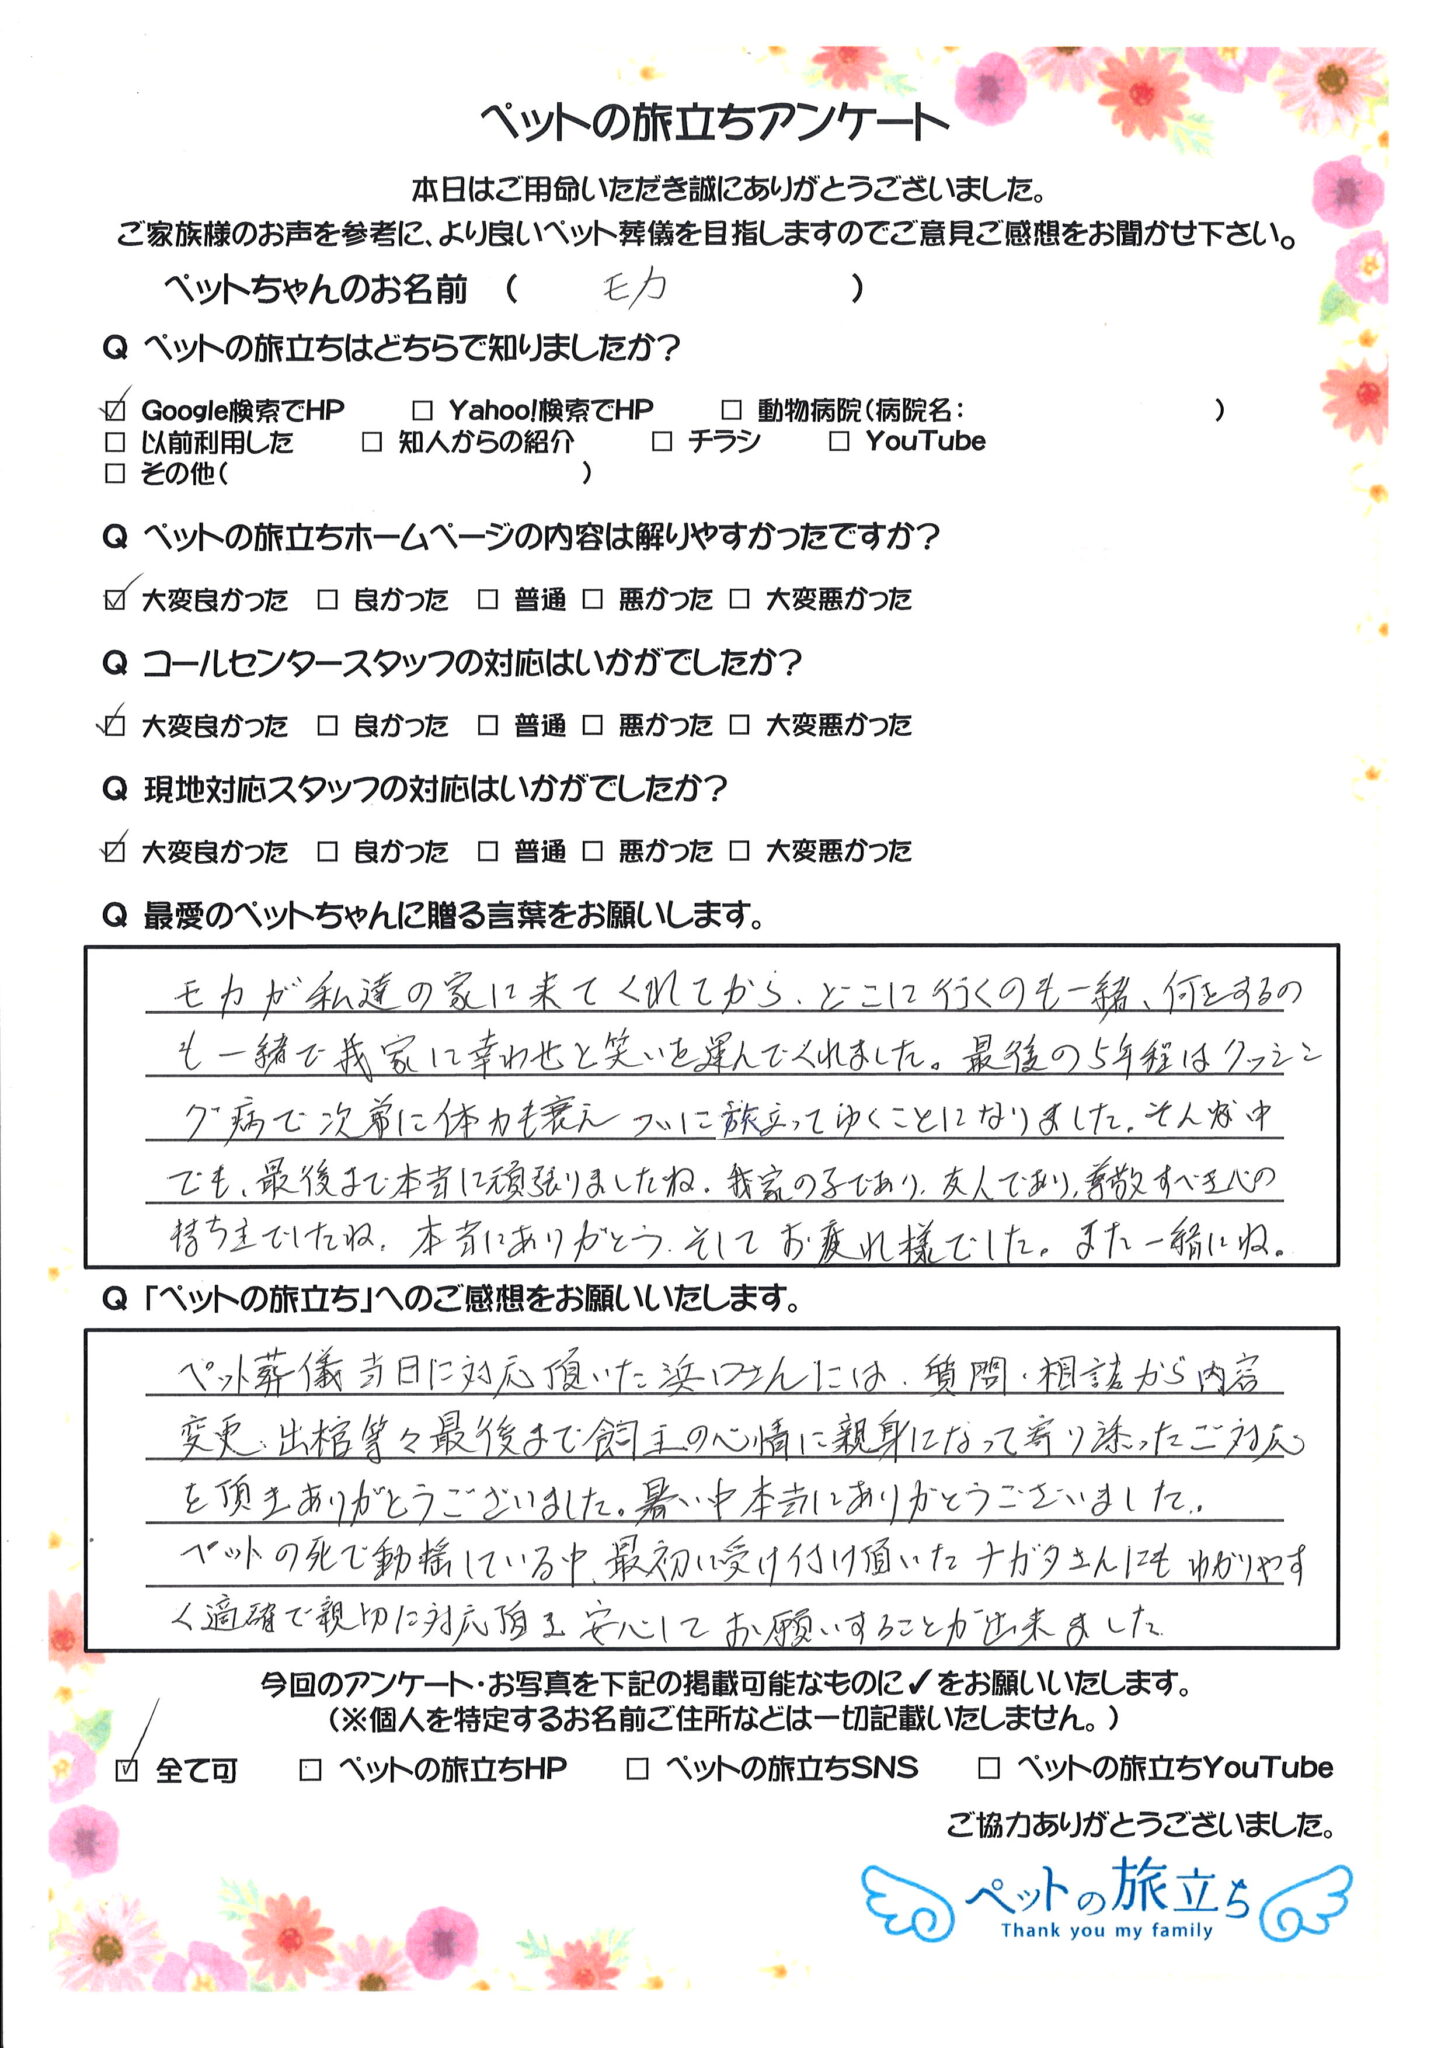 ペットの旅立ちアンケート
本日はご用命いただき誠にありがとうございました。
ご家族様のお声を参考に、より良いペット葬儀を目指しますのでご意見ご感想をお聞かせ下さい。
ペットちゃんのお名前 ( モカ )
Q ペットの旅立ちはどちらで知りましたか?
☑ Google検索でHP □ Yahoo!検索でHP □ 動物病院(病院名: )
□ 以前利用した □ 知人からの紹介 □ チラシ □ YouTube
□ その他( )
Q ペットの旅立ちホームページの内容は解りやすかったですか?
☑ 大変良かった □ 良かった □ 普通 □ 悪かった □ 大変悪かった
Q コールセンタースタッフの対応はいかがでしたか?
☑ 大変良かった □ 良かった □ 普通 □ 悪かった □ 大変悪かった
Q 現地対応スタッフの対応はいかがでしたか?
☑ 大変良かった □ 良かった □ 普通 □ 悪かった □ 大変悪かった
Q 最愛のペットちゃんに贈る言葉をお願いします。
モカが私達の家に来てくれてから、どこに行くのも一緒、何をするの
も一緒で我家に幸わせと笑いを運んでくれました。最後の5年程はクッシン
グ病で次第に体力も衰え ついに旅立ってゆくことになりました。そんな中
でも、最後まで本当に頑張りましたね。我家の子であり、友人であり、尊敬すべき心の
持ち主でしたね。本当にありがとう。そしてお疲れ様でした。また一緒にね。
Q 「ペットの旅立ち」へのご感想をお願いいたします。
ペット葬儀当日に対応頂いた浜口さんには、質問・相談から内容
変更、出棺等々最後まで飼主の心情に親身になって寄り添ったご対応
を頂きありがとうございました。暑い中本当にありがとうございました。
ペットの死で動揺している中、最初に受け付け頂いたナガタさんにもわかりやす
く適確で親切に対応頂き安心してお願いすることが出来ました
今回のアンケート・お写真を下記の掲載可能なものに✓をお願いいたします。
(※個人を特定するお名前ご住所などは一切記載いたしません。)
☑ 全て可 □ ペットの旅立ちHP □ ペットの旅立ちSNS □ ペットの旅立ちYouTube
ご協力ありがとうございました。
ペットの旅立ち
Thank you my family